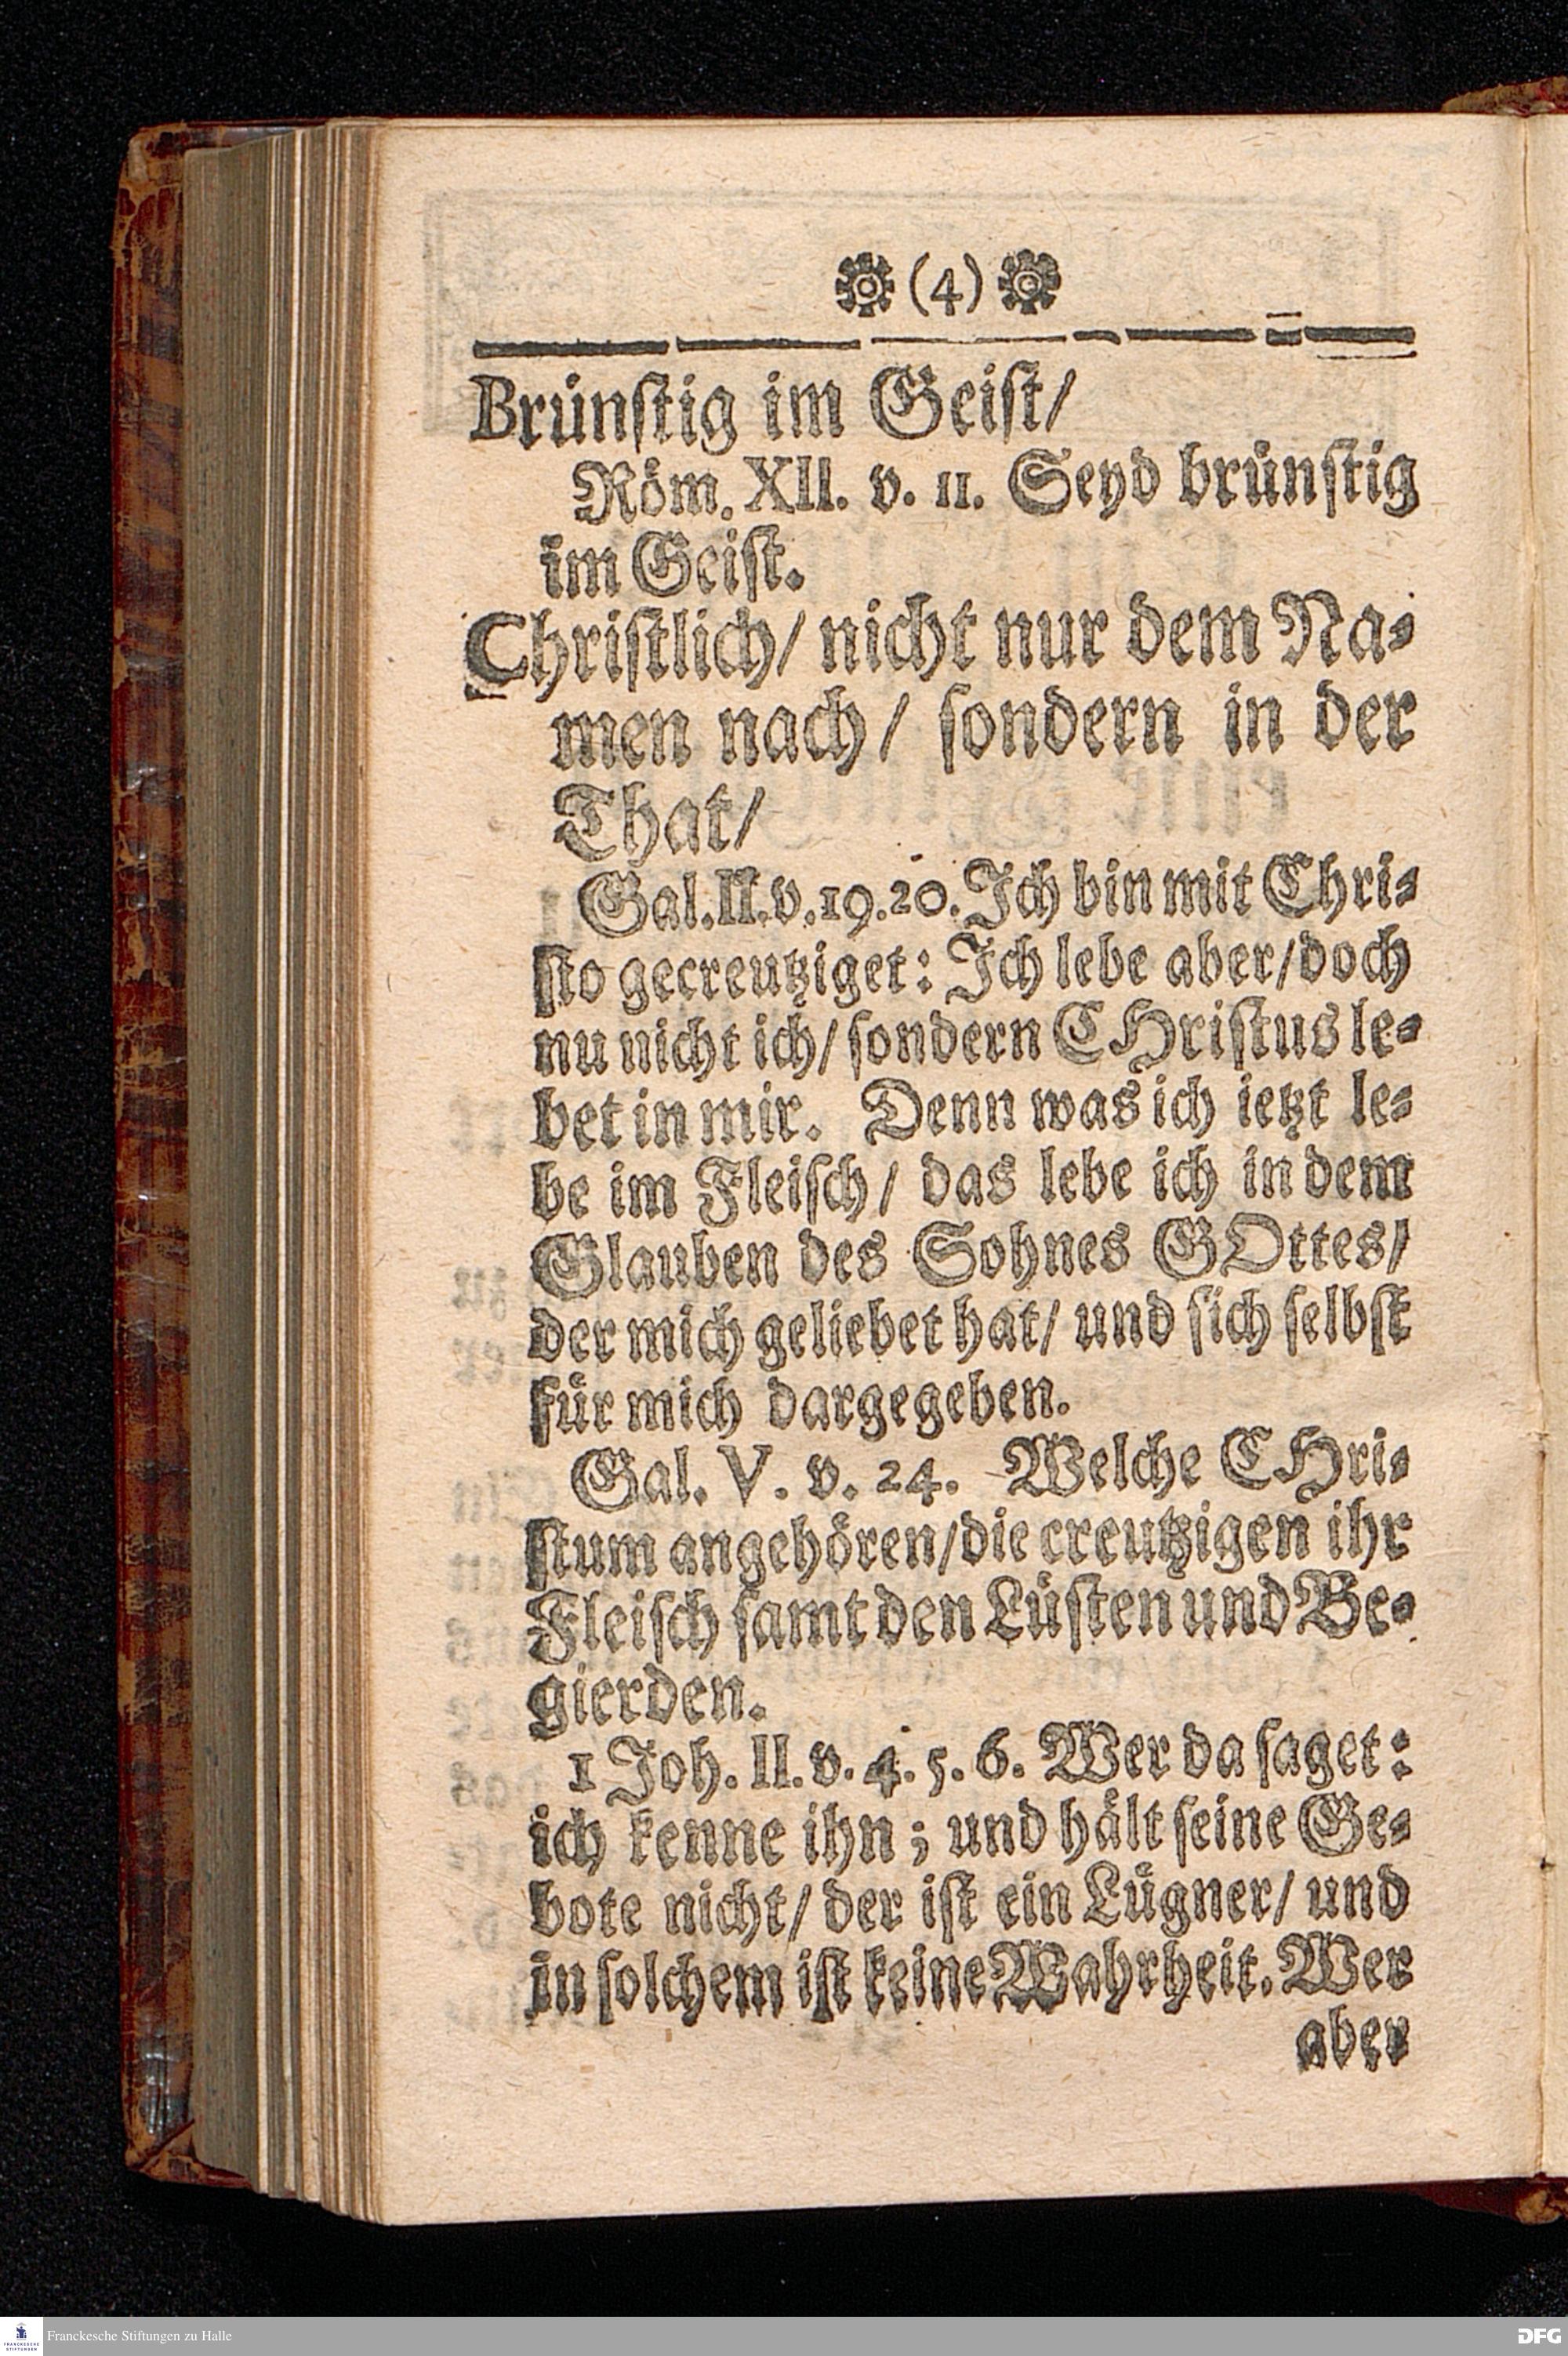 (4)
Brünſtig im Geiſt/
Röm. XII. v. 11. Seyd brünſtig
im Geiſt.
Chriſtlich/ nicht nur dem Na-
men nach/ ſondern in der
That/
Gal. II. v. 19. 20. Ich bin mit Chri-
ſto gecreutziget: Ich lebe aber/ doch
nu nicht ich/ ſondern CHriſtus le-
bet in mir. Denn was ich ietzt le-
be im Fleiſch/ das lebe ich in dem
Glauben des Sohnes GOttes/
der mich geliebet hat/ und ſich ſelbſt
für mich dargegeben.
Gal. V. v. 24. Welche CHri-
ſtum angehören/ die creutzigen ihr
Fleiſch ſamt den Lüſten und Be-
gierden.
1 Joh. II. v. 4. 5. 6. Wer da ſaget:
ich kenne ihn; und hält ſeine Ge-
bote nicht/ der iſt ein Lügner/ und
in ſolchem iſt keine Wahrheit. Wer
aber
Franckesche Stiftungen zu Halle
DFG